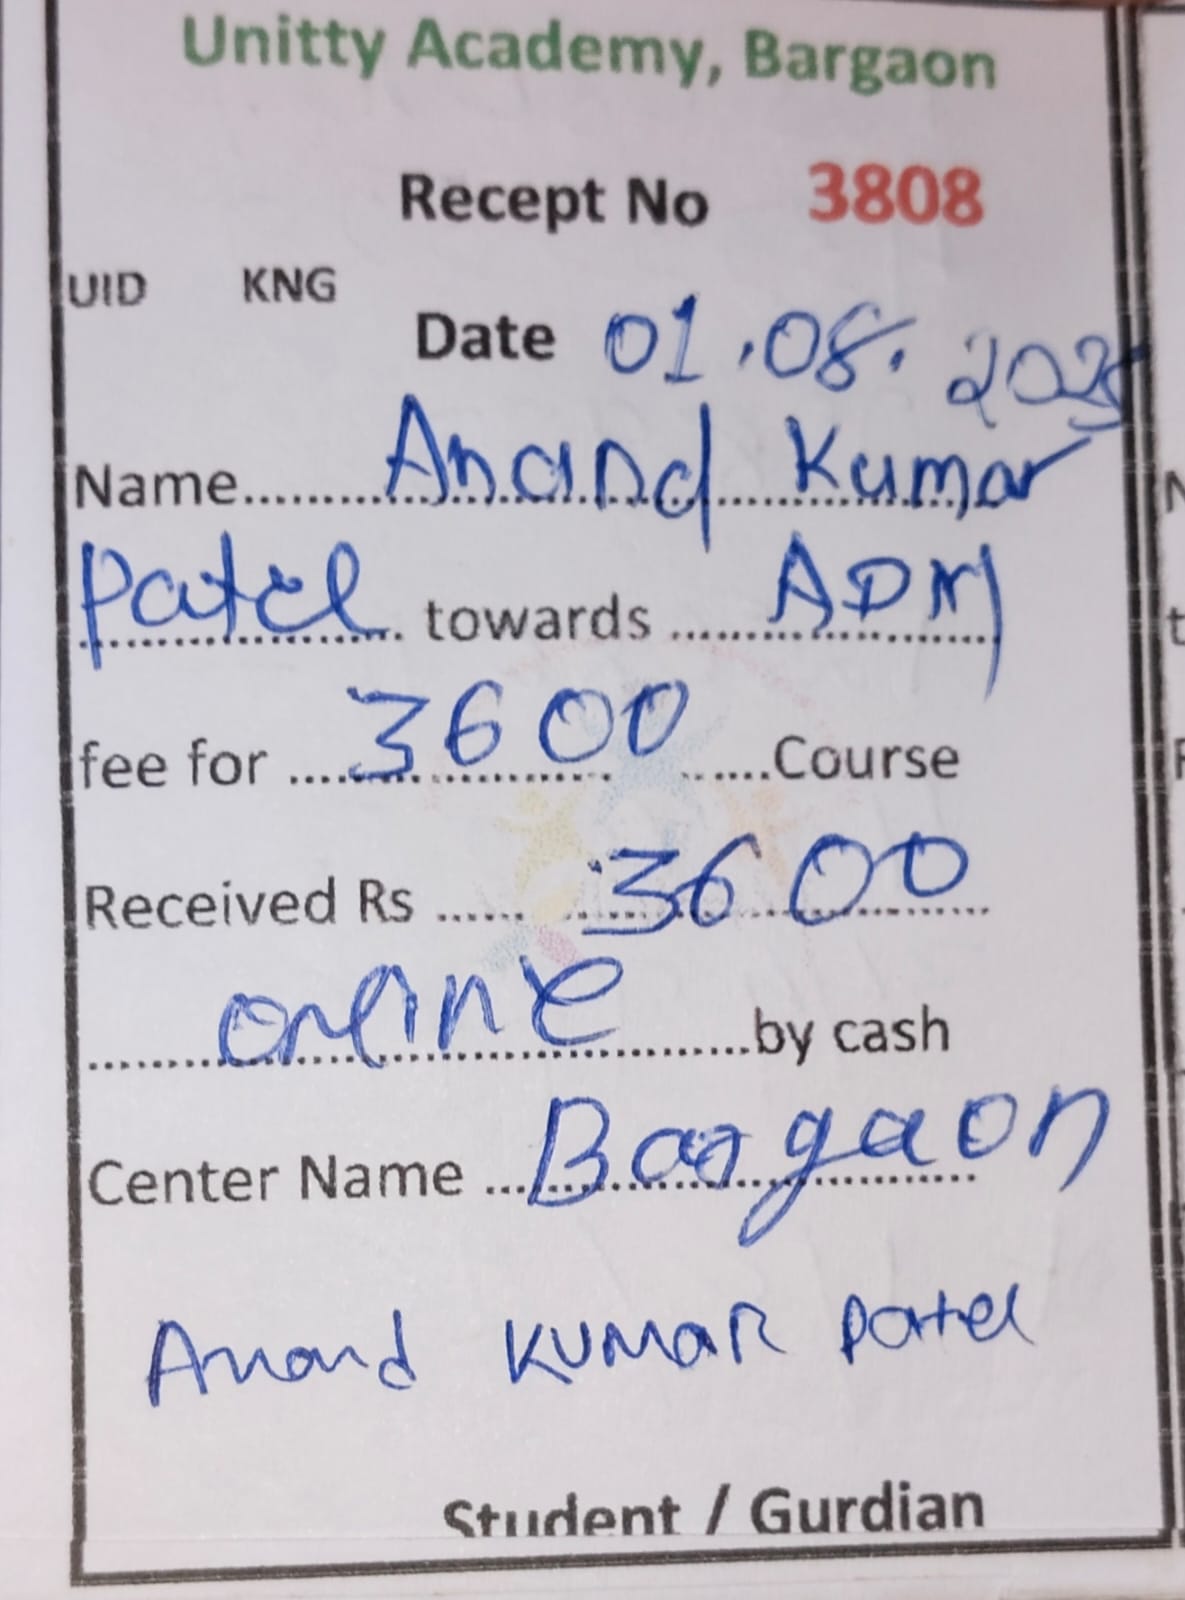 Unitty Academy, Bargaon
Recept No 3808
UID KNG
Date 01.08.2025
Name.................Anand Kumar
Patel towards ADM
fee for 3600 Course
Received Rs 3600
online by cash
Center Name Bargaon
Anand KUMAR Patel
Student / Gurdian